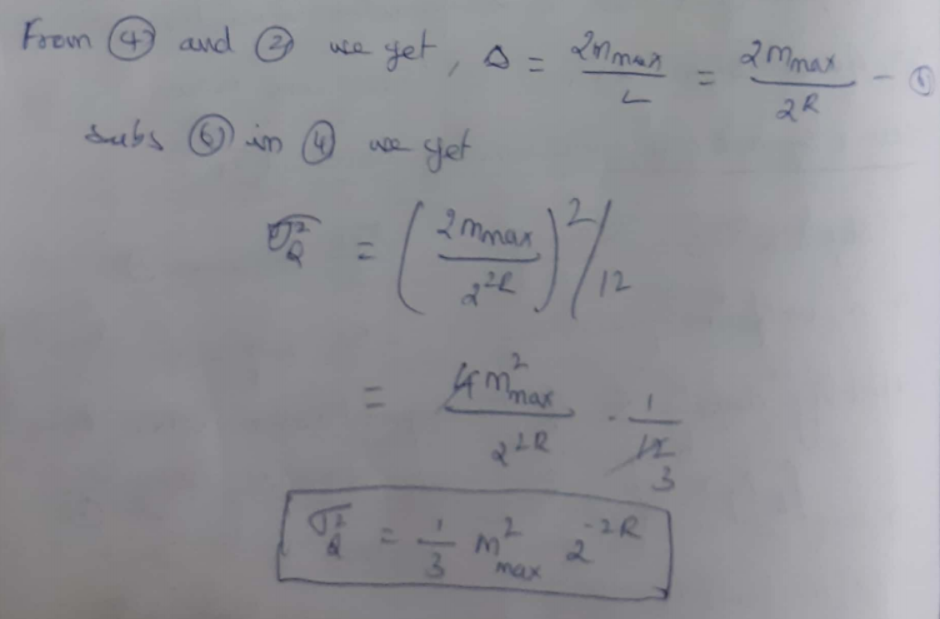 From ④ and ② we get, Δ = 2m_max / L = 2m_max / 2^R - ⑥
subs ⑥ in ④ we get
σ_Q^2 = (2m_max / 2^2R)^2 / 12
= 4m^2_max / 2^2R · 1 / 12 3
σ_Q^2 = 1/3 m^2_max 2^-2R